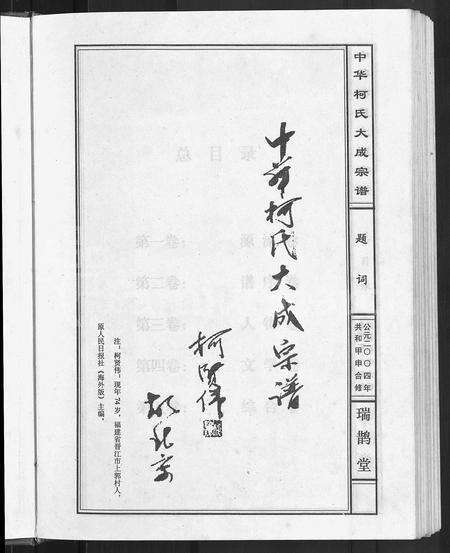 中华柯氏大成宗谱
题词
公元二〇〇四年
共和甲申合修
瑞鹊堂
中华柯氏大成宗谱
柯贤伟
注：柯贤伟：现年74岁，福建省晋江市上郭村人，
原人民日报社《海外版》主编。
总目录
第一卷：
第二卷：
第三卷：
第四卷：